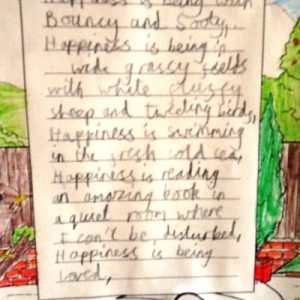 Happiness is being with
Bouncy and Sooty,
Happiness is being in
wide grassy fields
with white fluffy
sheep and tweeting birds,
Happiness is swimming
in the fresh cold sea,
Happiness is reading
an amazing book in
a quiet room where
I can't be disturbed,
Happiness is being
loved,